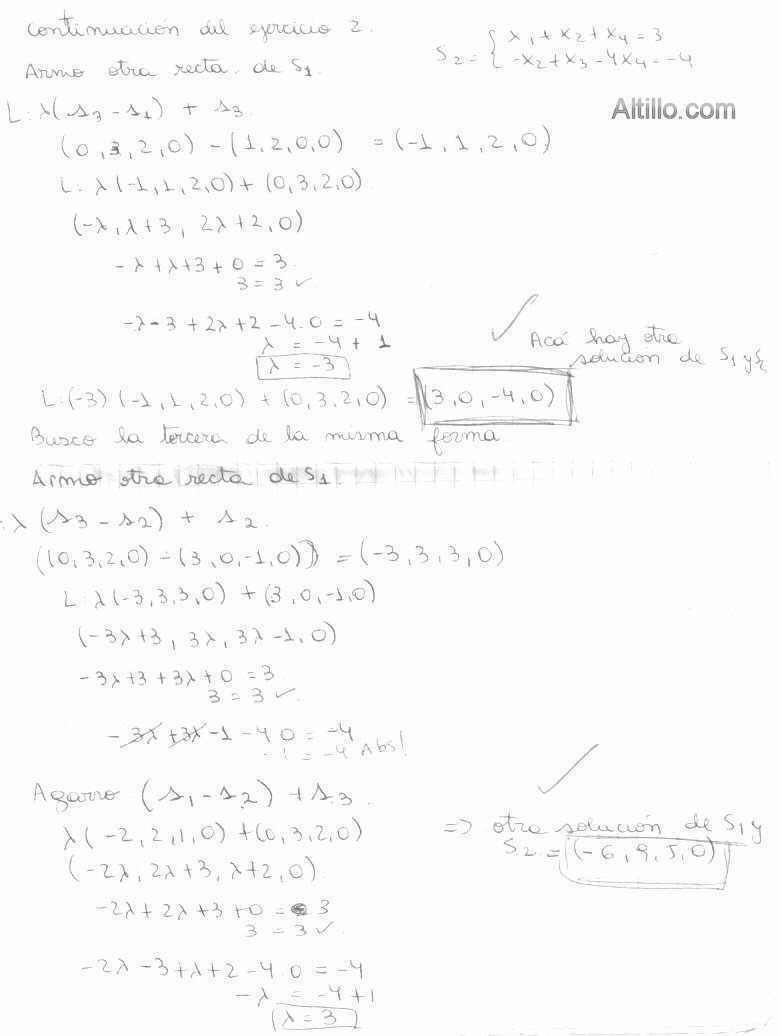 Continuación del ejercicio 2.
S2 = { x1 + x2 + x4 = 3
-x2 + x3 - 4x4 = -4
Armo otra recta de S1.
Altillo.com
L: λ(s3 - s1) + s3.
(0, 3, 2, 0) - (1, 2, 0, 0) = (-1, 1, 2, 0)
L: λ(-1, 1, 2, 0) + (0, 3, 2, 0)
(-λ, λ+3, 2λ+2, 0)
-λ + λ+3 + 0 = 3
3 = 3 ✓
-λ - 3 + 2λ + 2 - 4.0 = -4
λ = -4 + 1
λ = -3
✓ Acá hay otra
solución de S1 y S2
L: (-3) (-1, 1, 2, 0) + (0, 3, 2, 0) = (3, 0, -4, 0)
Busco la tercera de la misma forma
Armo otra recta de S1.
: λ (s3 - s2) + s2.
((0, 3, 2, 0) - (3, 0, -1, 0)) = (-3, 3, 3, 0)
L: λ(-3, 3, 3, 0) + (3, 0, -1, 0)
(-3λ+3, 3λ, 3λ-1, 0)
-3λ+3 + 3λ + 0 = 3
3 = 3 ✓
-3λ + 3λ - 1 - 4 0 = -4
-1 = -4 Abs!
Agarro (s1 - s2) + s3.
λ(-2, 2, 1, 0) + (0, 3, 2, 0)
(-2λ, 2λ+3, λ+2, 0)
✓
=> otra solución de S1 y
S2 = (-6, 9, 5, 0)
-2λ + 2λ + 3 + 0 = 3
3 = 3 ✓
-2λ - 3 + λ + 2 - 4.0 = -4
-λ = -4 + 1
λ = 3